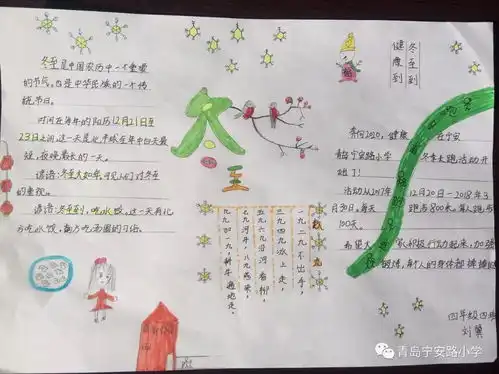 冬至是中国农历中一个重要
的节气，也是中华民族的一个传
统节日。
时间在每年的阳历12月21日至
23日之间，这一天是北半球在年中白天最
短，夜晚最长的一天。
谚语：冬至大如年，可见人们对冬至
的重视。
谚语：冬至到，吃水饺，这一天有北
方吃水饺，南方吃汤圆的习俗。
冬至
冬至到
健康到
数九歌
一九二九不出手，
三九四九冰上走，
五九六九沿河看柳，
七九河开，八九燕来，
九九加一九，耕牛遍地走。
奔向2020，健康
在宁安
青岛宁安路小学
冬季长跑活动开
始了！
活动从2017年
12月20日－2018年3
月30日。每天
跑步800米，每人跑
100天。
希望大
家积极行动起来，加强
锻炼，每个人的身体都棒棒
四年级四班
青岛宁安路小学